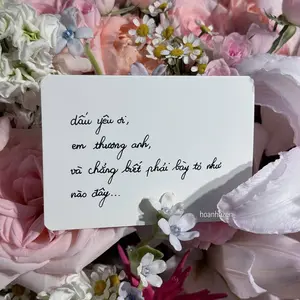 dấu yêu ơi,
em thương anh,
và chẳng biết phải bày tỏ như
nào đây...